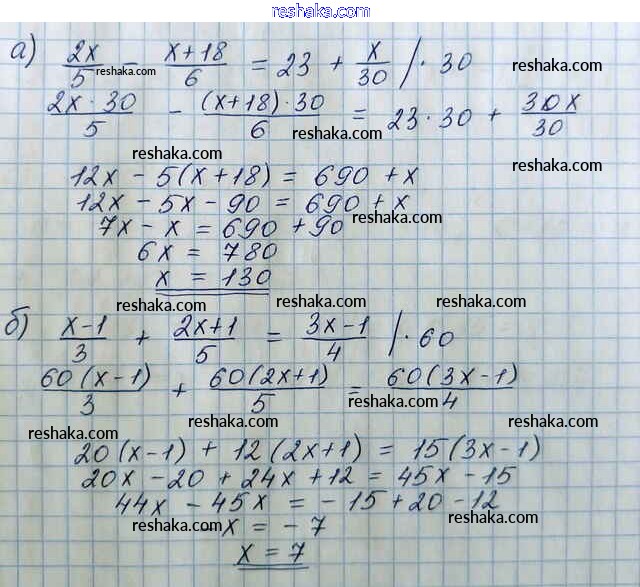 reshaka.com
а) 2x/5 - (x+18)/6 = 23 + x/30 /· 30
reshaka.com
reshaka.com
2x · 30/5 - (x+18) · 30/6 = 23 · 30 + 30x/30
reshaka.com
reshaka.com
12x - 5(x+18) = 690 + x
12x - 5x - 90 = 690 + x
reshaka.com
7x - x = 690 + 90
6x = 780
reshaka.com
x = 130
reshaka.com
reshaka.com
б) (x-1)/3 + (2x+1)/5 = (3x-1)/4 /· 60
60(x-1)/3 + 60(2x+1)/5 = 60(3x-1)/4
reshaka.com
reshaka.com
reshaka.com
reshaka.com
20(x-1) + 12(2x+1) = 15(3x-1)
20x - 20 + 24x + 12 = 45x - 15
44x - 45x = - 15 + 20 - 12
reshaka.com
-x = - 7
reshaka.com
reshaka.com
x = 7
reshaka.com